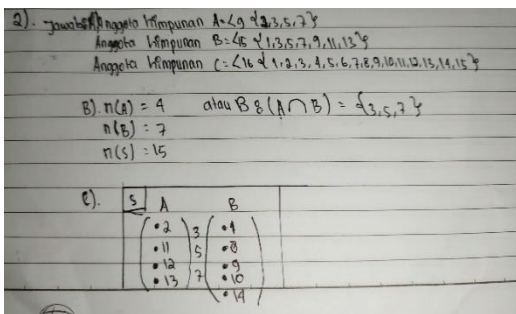 2). Jawab: A) Anggota himpunan A = <9 {2,3,5,7}
Anggota himpunan B = <15 {1,3,5,7,9,11,13}
Anggota himpunan C = <16 {1,2,3,4,5,6,7,8,9,10,11,12,13,14,15}
B). n(A) = 4 atau B & (A∩B) = {3,5,7}
n(B) = 7
n(S) = 15
C). S A B
•2 3 •1
•11 5 •8
•12 •9
•13 7 •10
•14